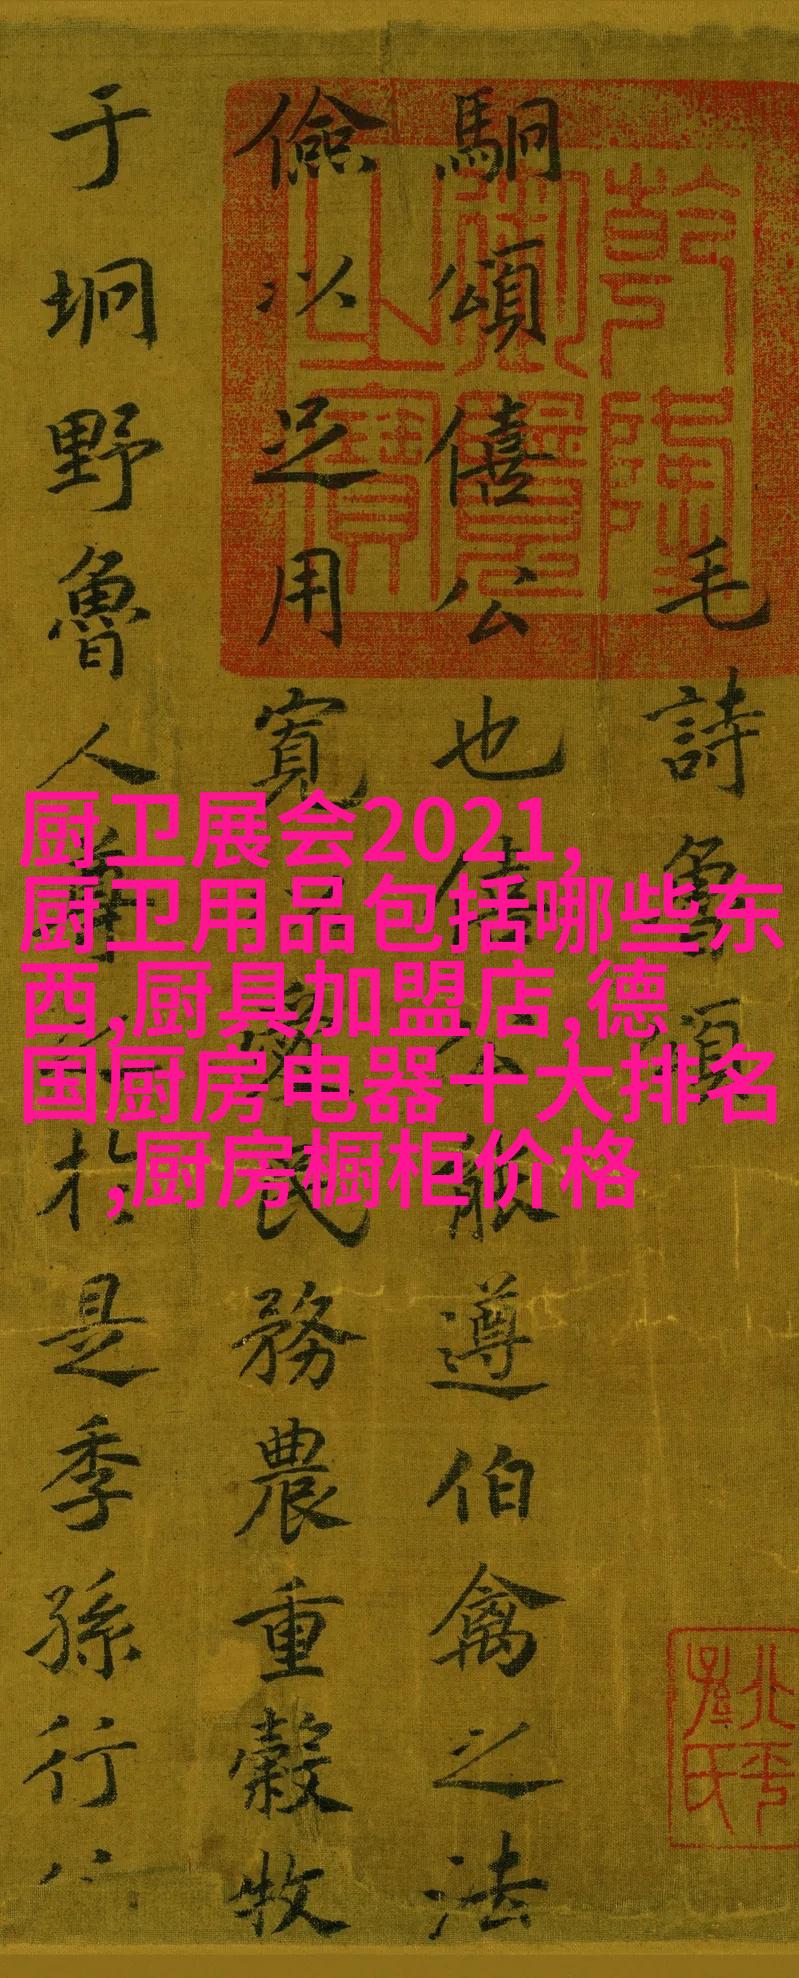 毛詩魯頌
駉頌僖公也僖公能遵伯禽之法
儉以足用寬以愛民務農重穀牧
于坰野魯人尊之於是季孫行
乾隆御覽之寶
北平孫氏
厨卫展会2021,
厨卫用品包括哪些东
西,厨具加盟店,德
国厨房电器十大排名
,厨房橱柜价格